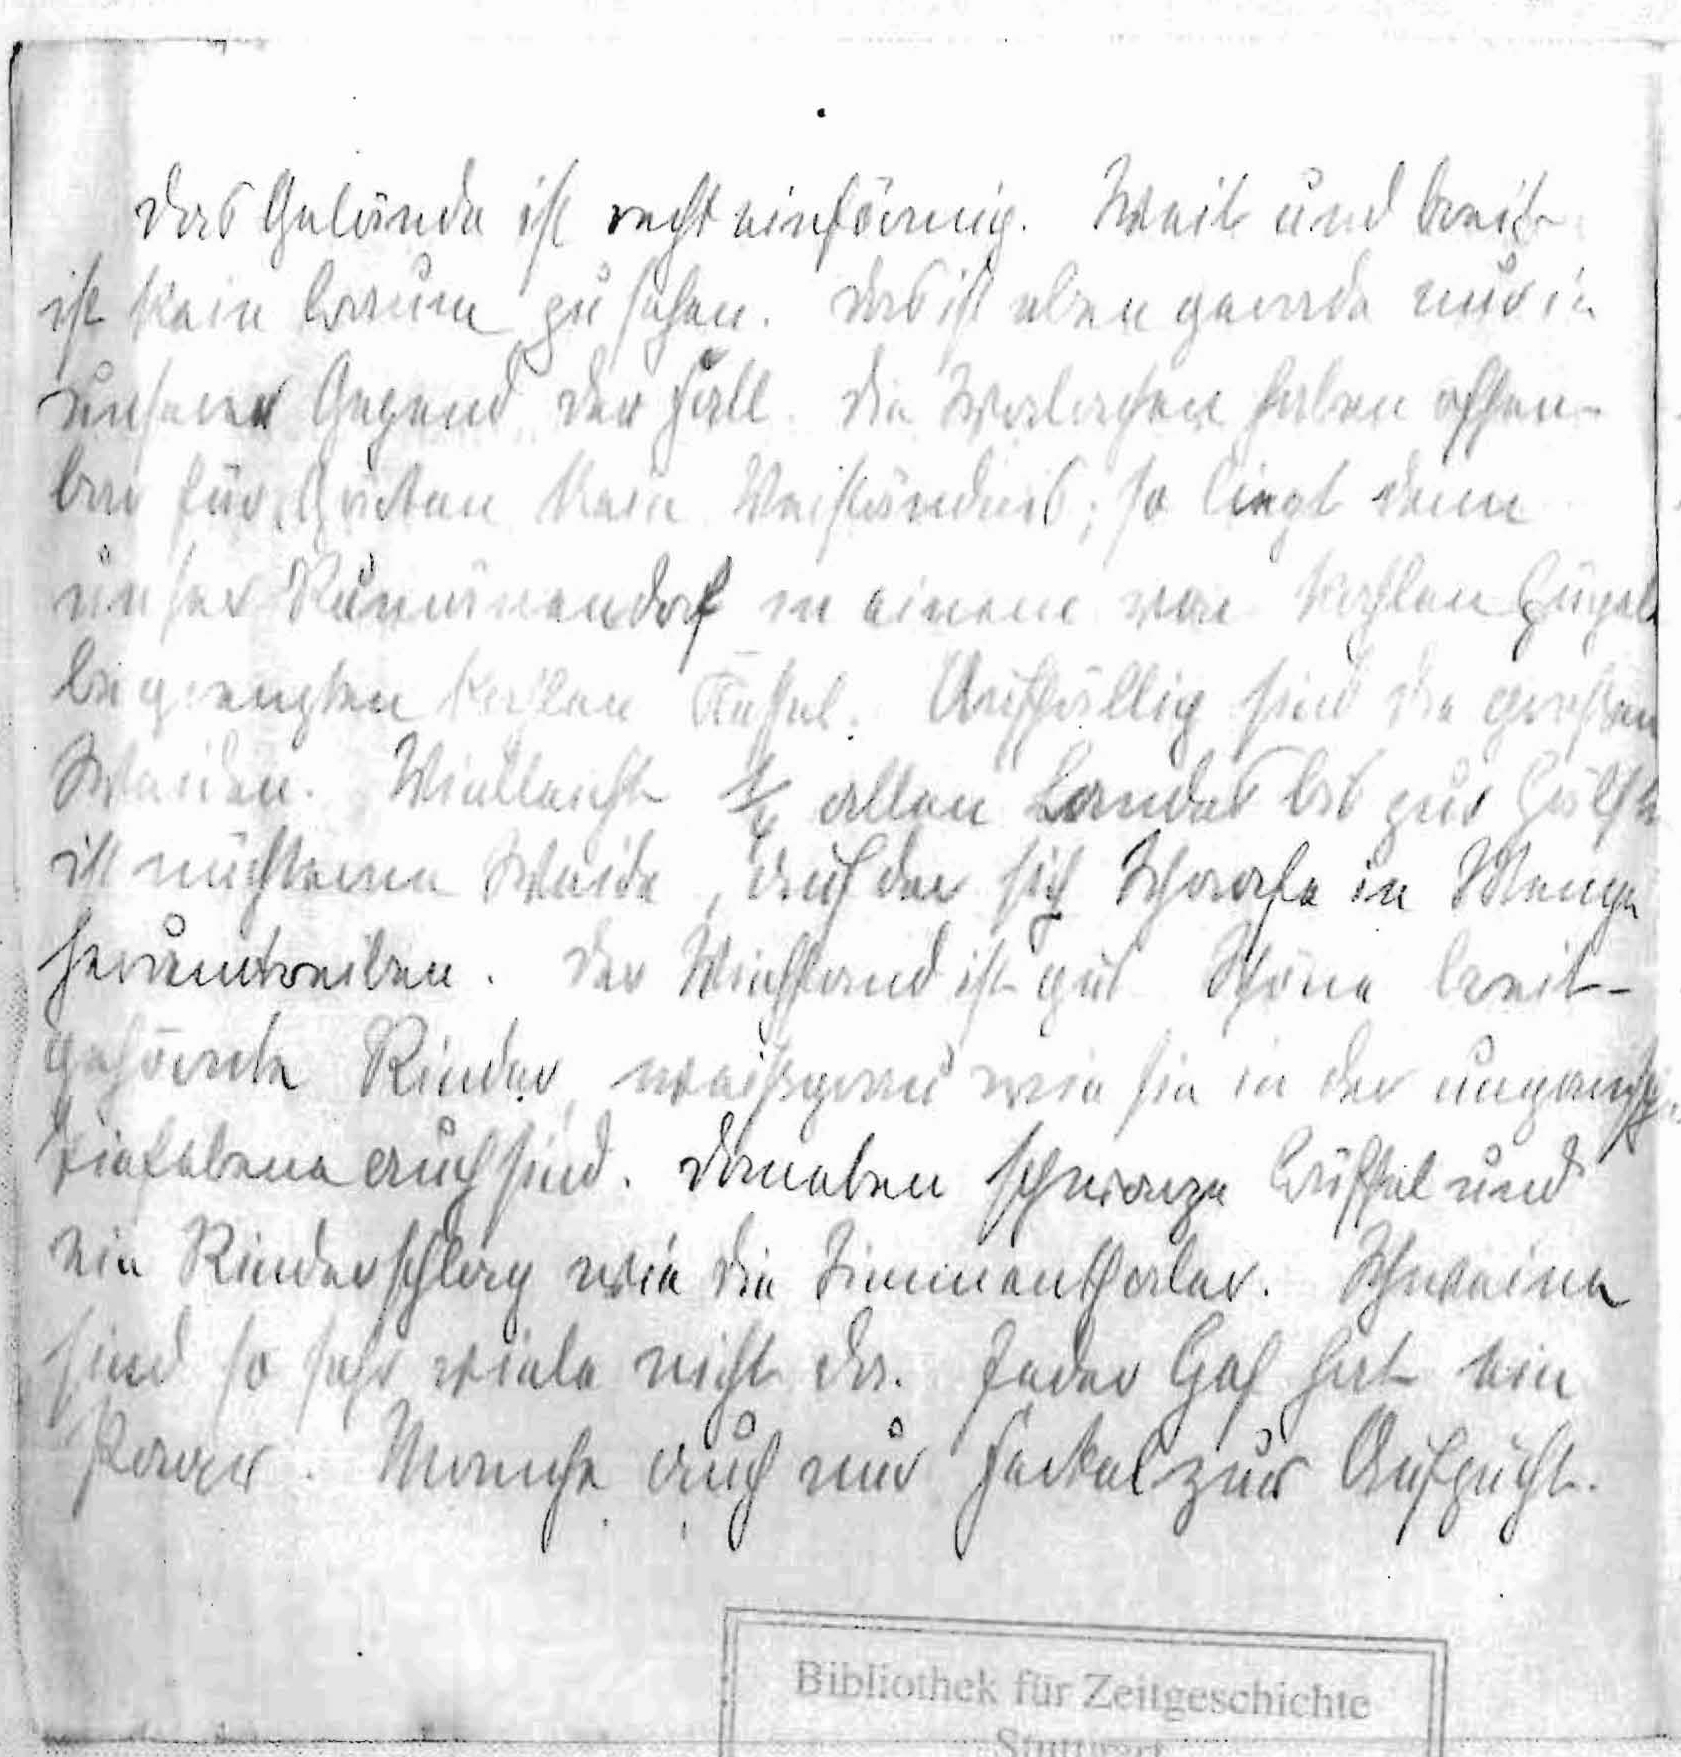 Das Gelände ist recht einförmig. Weit und breit
ist kein Baum zu sehen. Das ist eben gerade nur in
unserer Gegend der Fall. Die Walachen haben offen-
bar für Gärten kein Verständnis; so liegt denn
unser Rumänendorf in einem von kahlen Hügeln
begrenzten kahlen Kessel. Auffällig sind die großen
Weiden. Vielleicht 1/4 allen Landes bis zur Hälfte
ist nüchterne Weide, auf der sich Schaafe in Menge
herumtreiben. Der Viehstand ist gut. Schöne breit-
gehörnte Rinder weißgrau wie sie in der ungarischen
Tiefebene auch sind. Daneben schwarze Büffel und
ein Rinderschlag wie die Simmenthaler. Schweine
sind so sehr viele nicht da. Jeder Hof hat ein
Paar. Manche auch nur Ferkel zur Aufzucht.
Bibliothek für Zeitgeschichte
Stuttgart